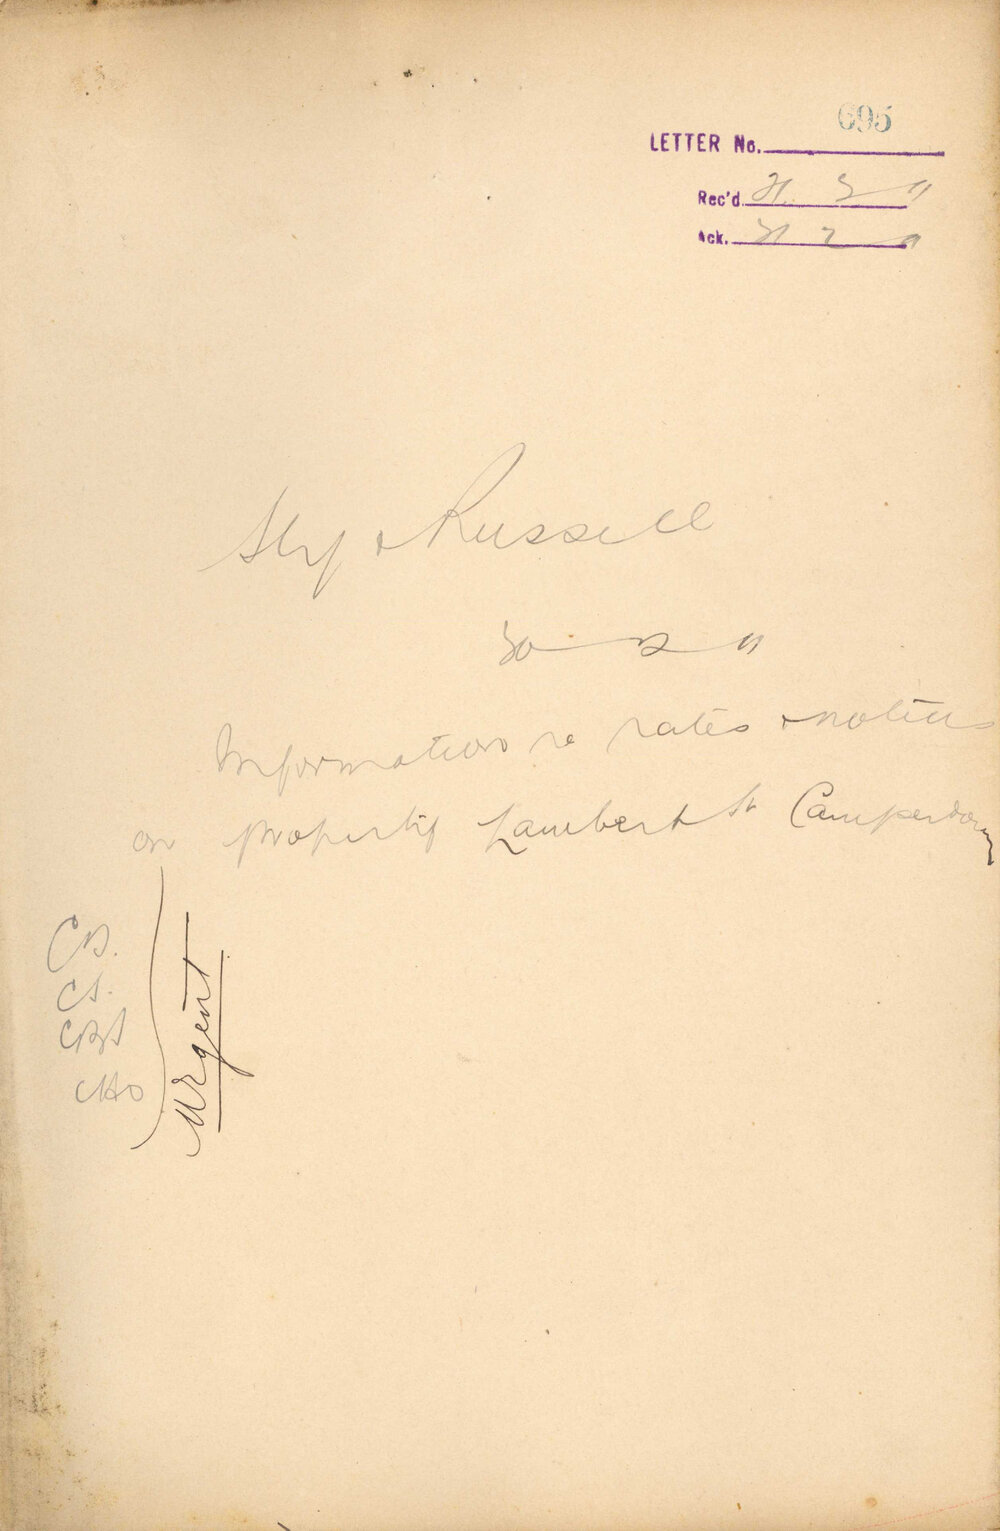 695
LETTER No.
Rec'd. 31. 3 11
Ack. 31 3 11
Sly & Russell
30 3 11
Information re rates & notices
on property Lambert St Camperdown
CS.
CBS
CHO
Urgent